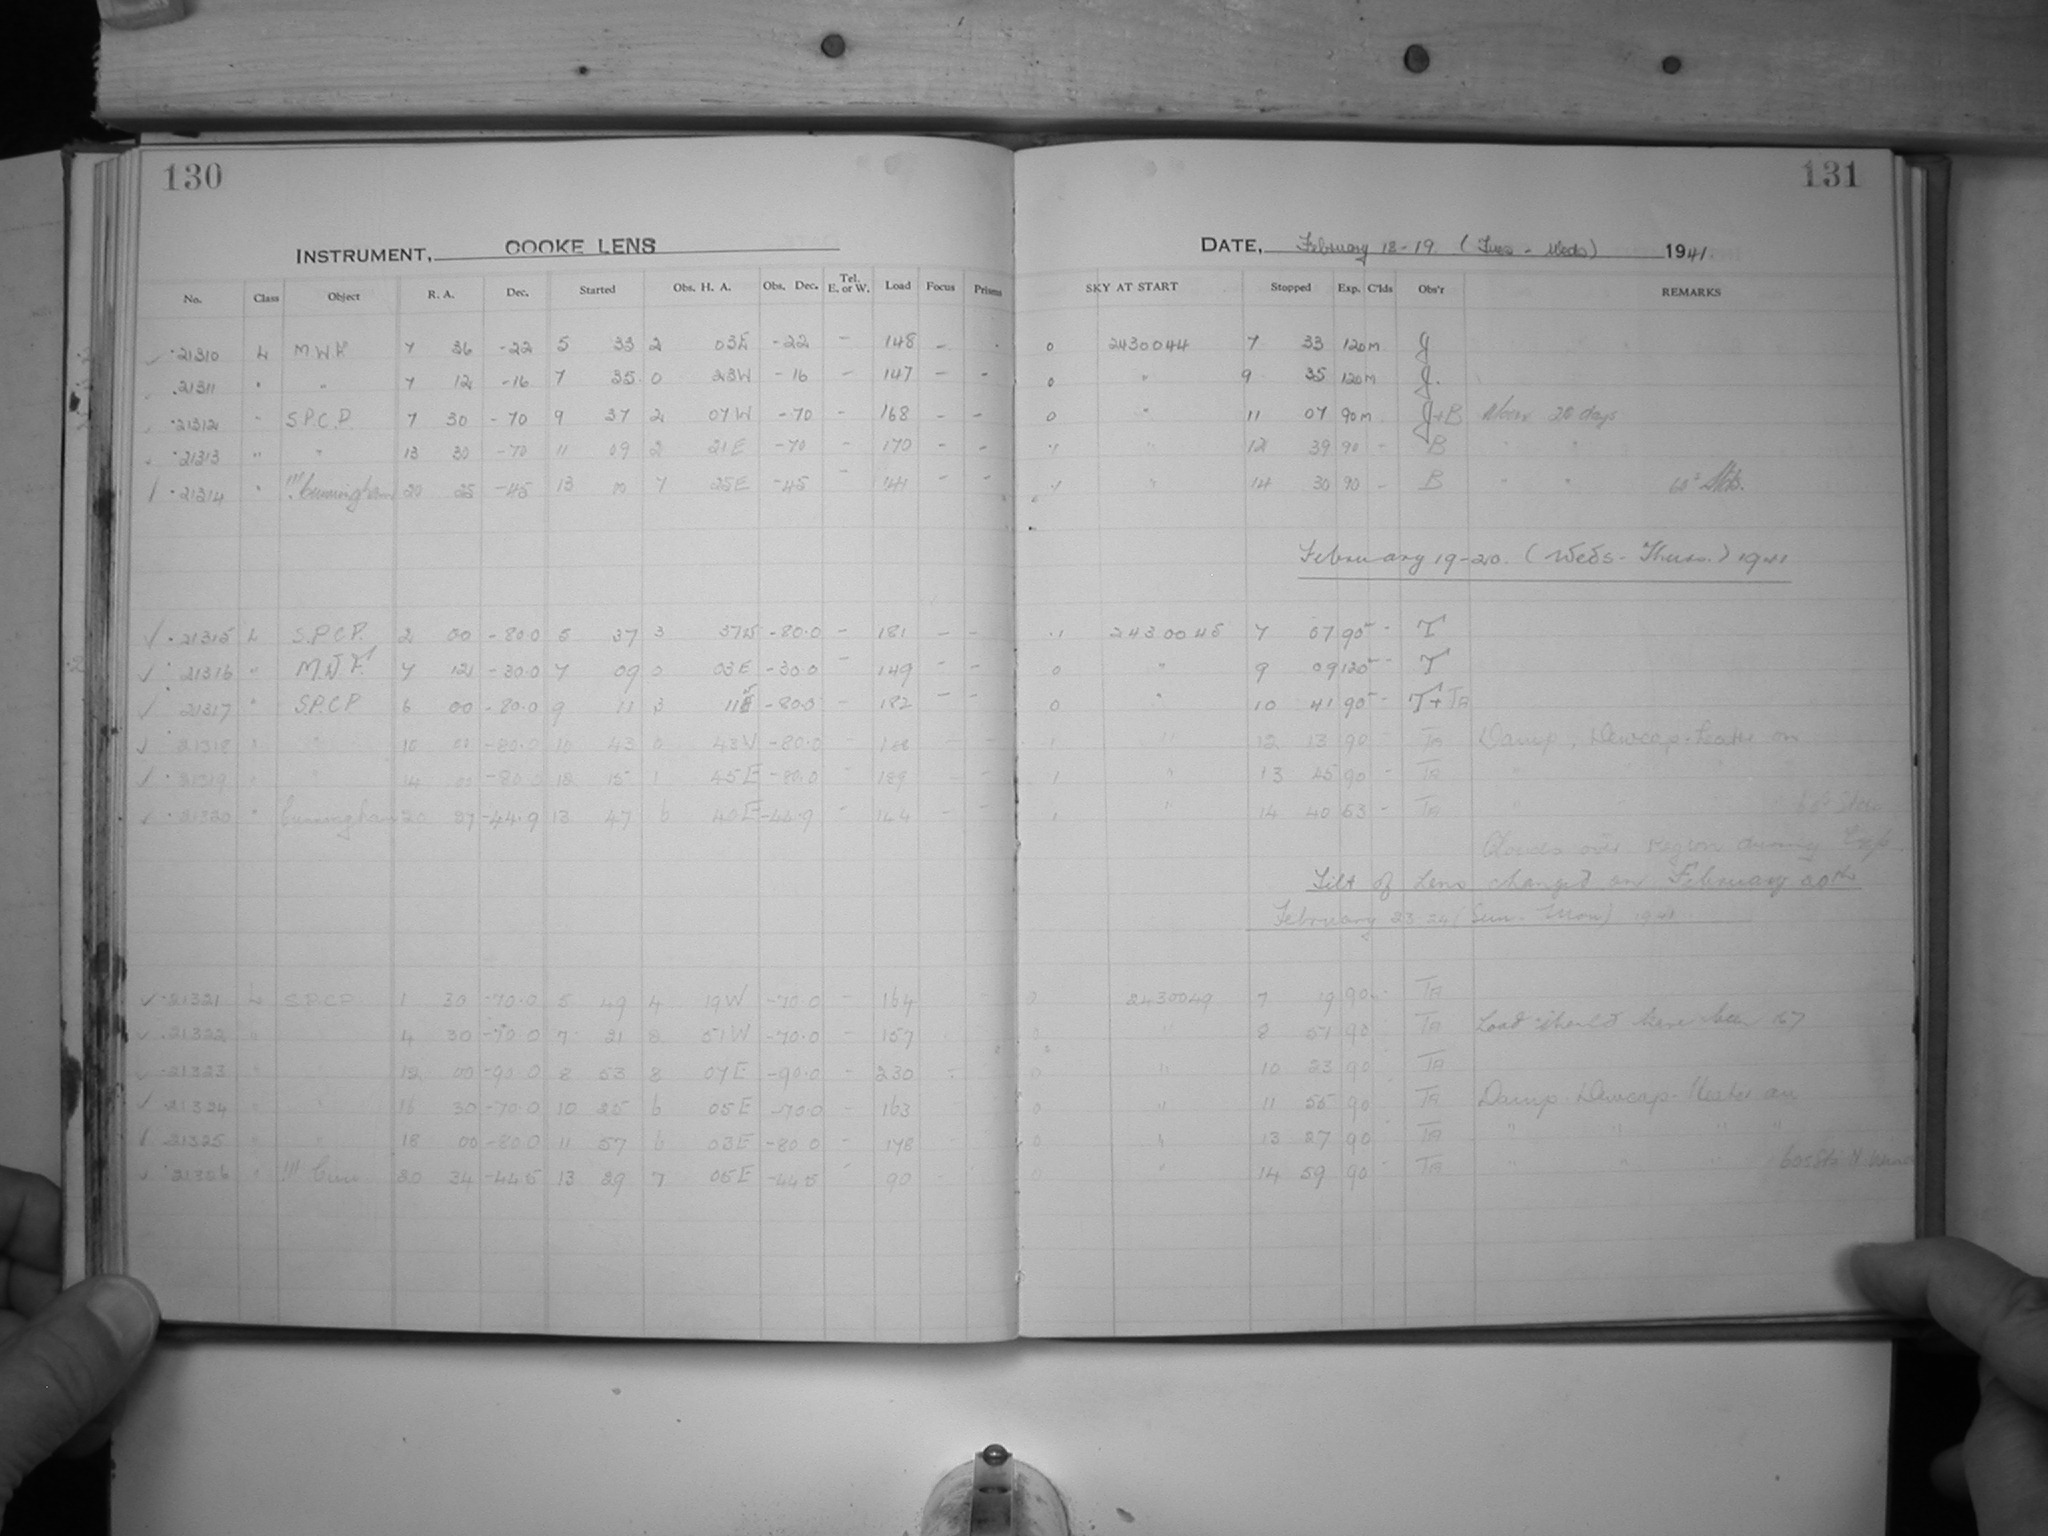 130
131
INSTRUMENT, COOKE LENS
DATE, February 18-19. (Tues - Weds) 1941.
No. Class Object R. A. Dec. Started Obs. H. A. Obs. Dec. Tel. E. or W. Load Focus Prisms SKY AT START Stopped Exp. C'lds Obs'r REMARKS
21310 L M.W.F. 7 36 -22 5 33 2 03E -22 - 148 - 0 2430044 7 33 120m J
21311 " " 7 12 -16 7 35 0 23W -16 - 147 - - 0 " 9 35 120m J.
21312 " S.P.C.P. 7 30 -70 9 37 2 07W -70 - 168 - - 0 " 11 07 90m J+B 20 days
21313 " " 13 30 -70 11 09 2 21E -70 - 170 - - .1 " 12 39 90 - B " "
21314 " !!! Cunningham 20 25 -45 13 00 7 25E -45 - 141 - - .1 " 14 30 90 - B " " 60s Sto.
February 19-20. (Weds - Thurs.) 1941
21315 L S.P.C.P. 2 00 -80.0 5 37 3 37W -80.0 - 181 - - .1 2430045 7 07 90 - T
21316 " M.W.F. 7 12 -30.0 7 09 0 03E -30.0 - 149 - - 0 " 9 09 120 - T
21317 " S.P.C.P. 6 00 -80.0 9 11 3 11 -80.0 - 182 - - 0 " 10 41 90 - T+TA
21318 " " 10 00 -80.0 10 43 0 43W -80.0 - 168 - - 1 " 12 13 90 - TA Damp, Dewcap-heater on
21319 " " 14 00 -80.0 12 15 1 45E -80.0 - 189 - - 1 " 13 45 90 - TA " "
21320 " Cunningham 20 27 -44.9 13 47 6 40E -44.9 - 144 - - 1 " 14 40 53 - TA " "
Clouds over region during Exp.
Tilt of Lens changed on February 20th
February 23-24 (Sun - Mon) 1941
21321 L S.P.C.P. 1 30 -70.0 5 49 4 19W -70.0 - 164 0 2430049 7 19 90 - TA
21322 " " 4 30 -70.0 7 21 51W -70.0 - 157 0 " 8 51 90 TA Load should have been 167
21323 " " 12 00 -90.0 8 53 8 07E -90.0 - 230 - 0 " 10 23 90 TA
21324 " " 16 30 -70.0 10 25 6 05E -70.0 - 163 0 " 11 55 90 TA Damp. Dewcap-Heater on
21325 " " 18 00 -80.0 11 57 6 03E -80.0 - 178 0 " 13 27 90 TA " " " "
21326 " !!! Cun 20 34 -44.5 13 29 7 05E -44.5 90 0 " 14 59 90 TA " " "